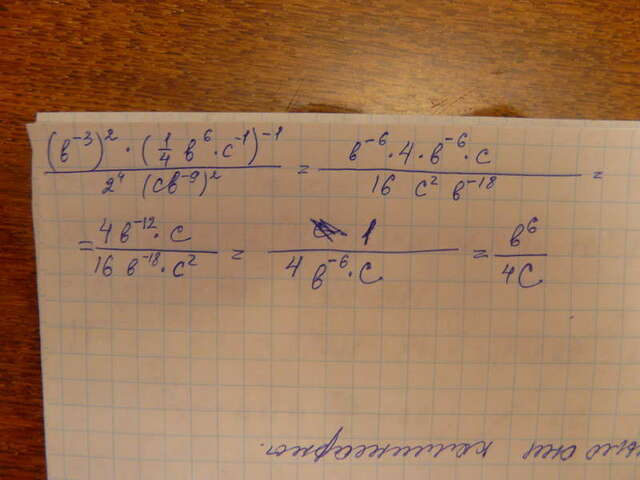 (b⁻³)² · (1/4 b⁶ · c⁻¹)⁻¹ / 2⁴ (cb⁻⁹)² = b⁻⁶ · 4 · b⁻⁶ · c / 16 c² b⁻¹⁸ =
= 4b⁻¹² · c / 16 b⁻¹⁸ · c² = 1 / 4 b⁻⁶ · c = b⁶ / 4c